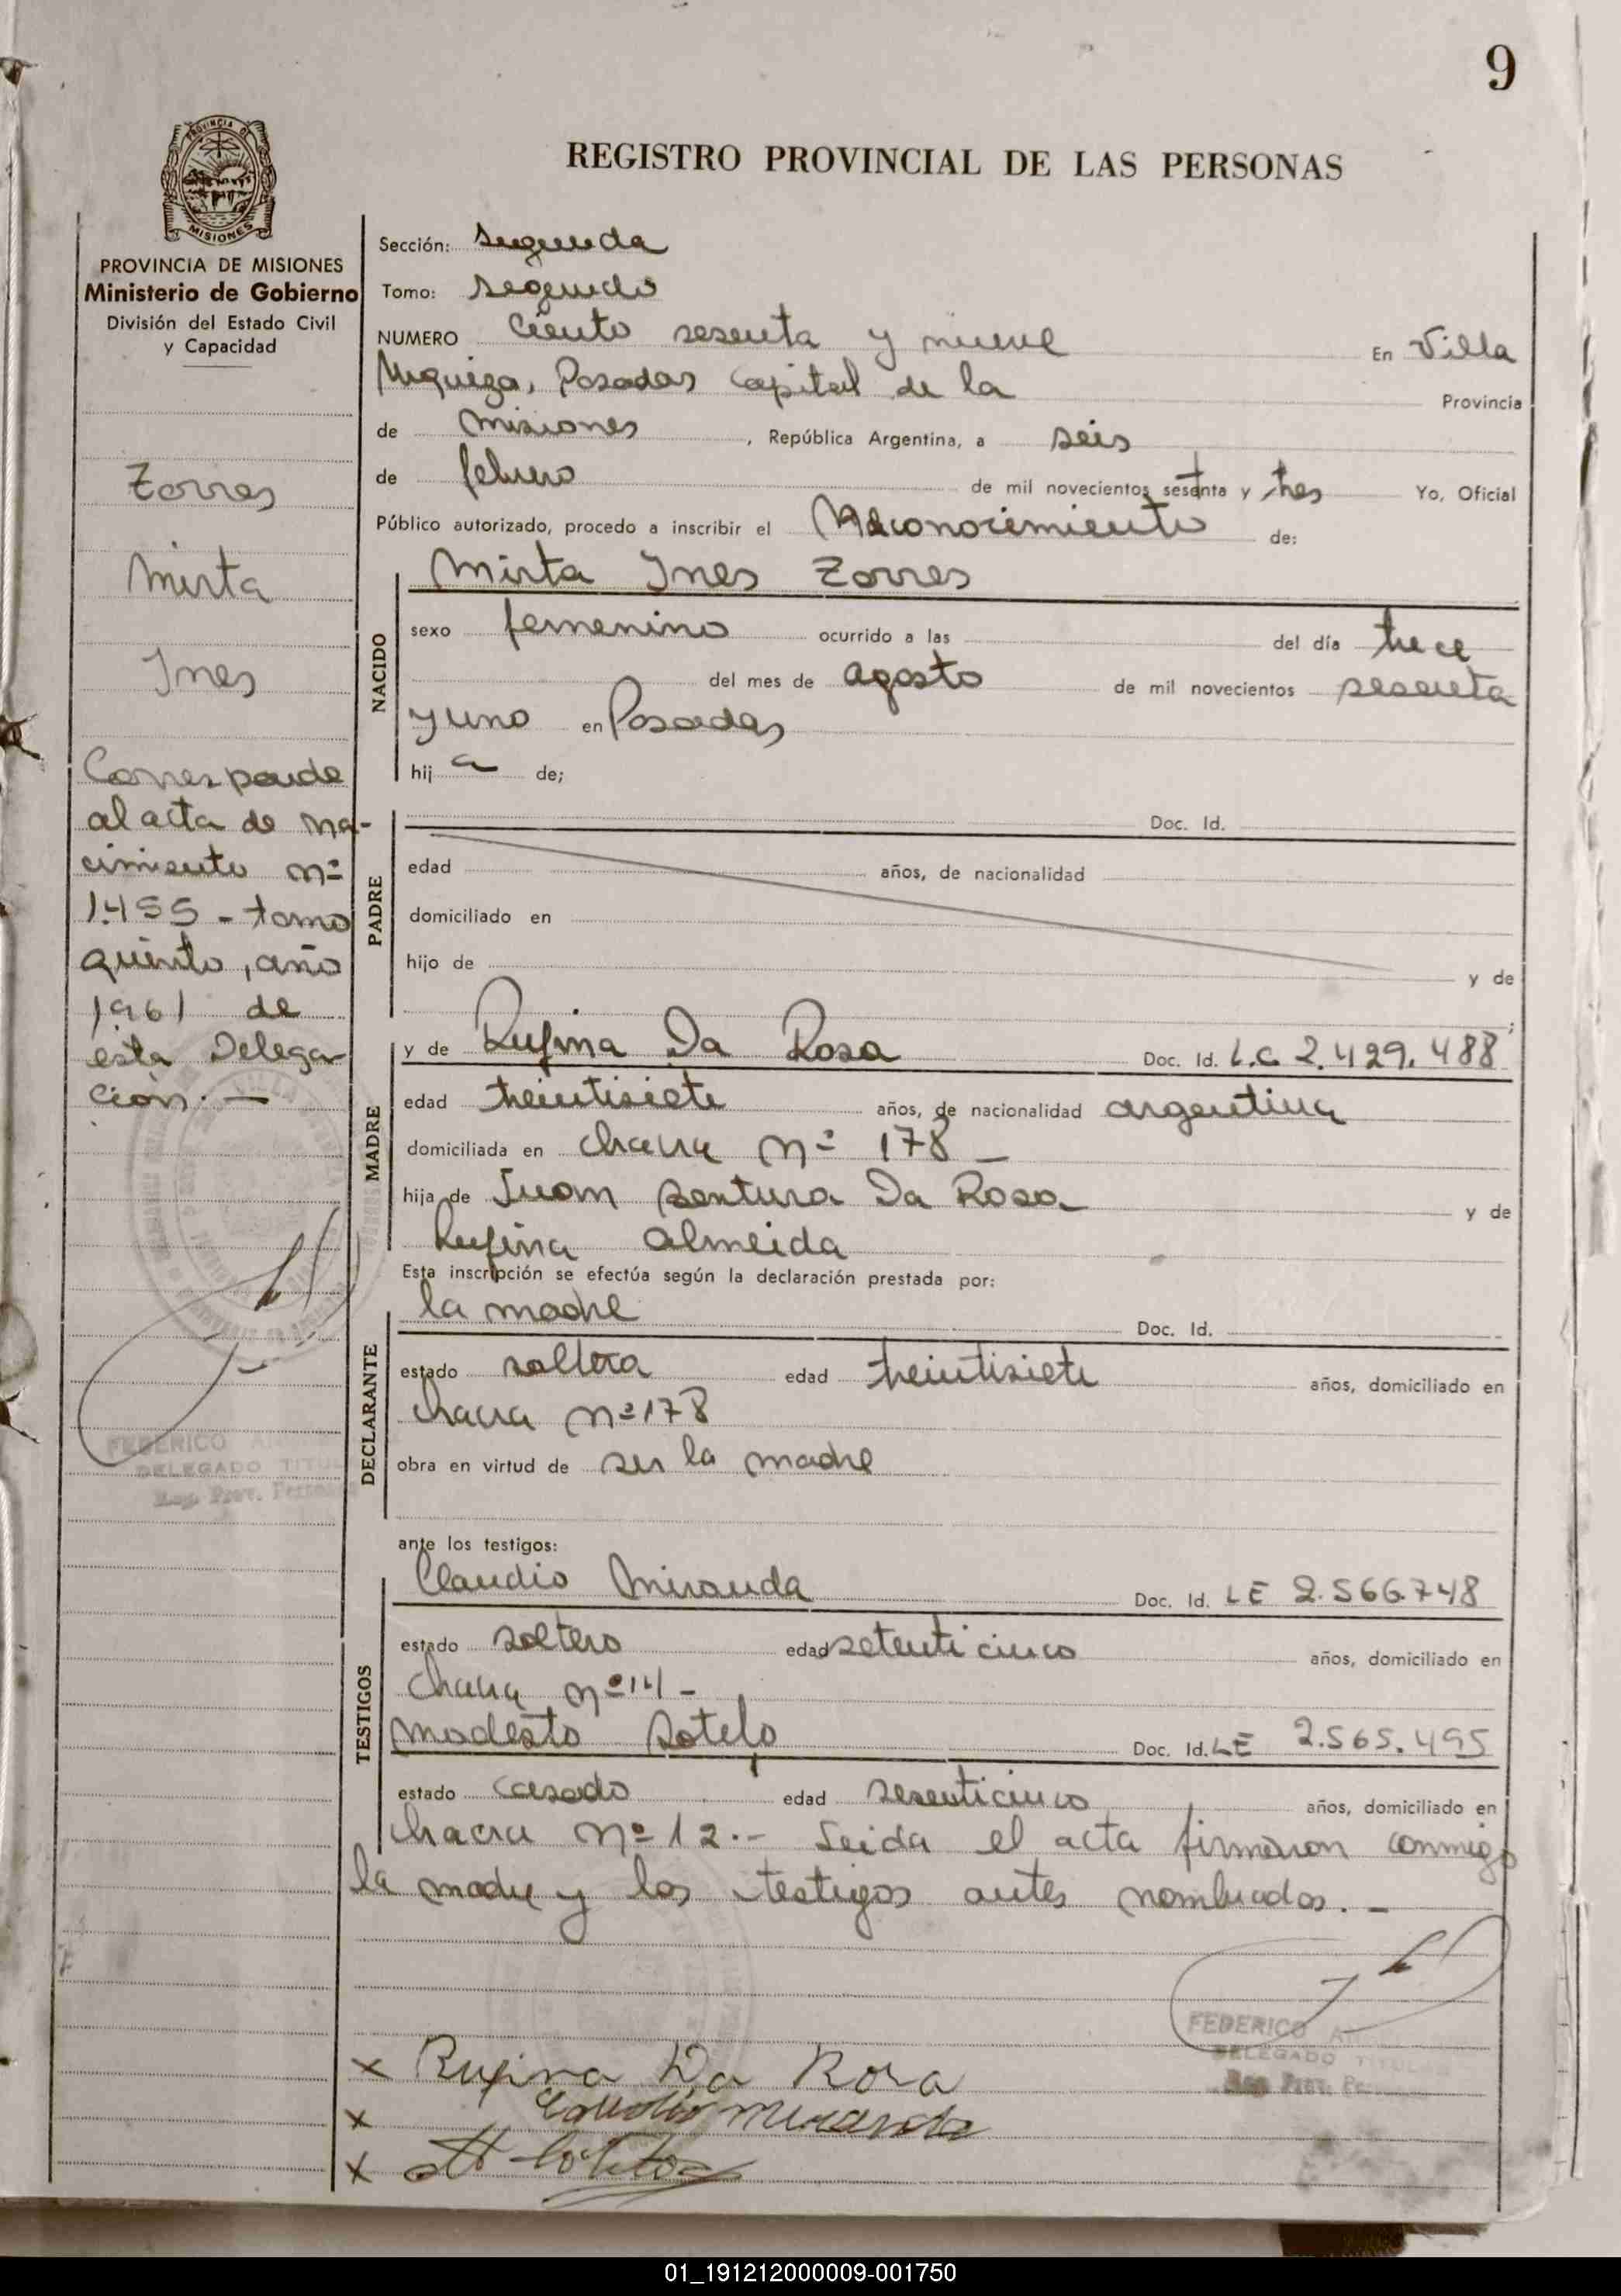 9
REGISTRO PROVINCIAL DE LAS PERSONAS
PROVINCIA DE MISIONES
Ministerio de Gobierno
División del Estado Civil
y Capacidad
Zorres
Mirta
Ines
Corresponde
al acta de na-
cimiento nº
1.455 - tomo
quinto, año
1961 de
esta Delega-
ción. -
FEDERICO
DELEGADO TITULAR
Reg. Prov. Personas
Sección: segunda
Tomo: segundo
NUMERO ciento sesenta y nueve En Villa
Urquiza, Posadas capital de la Provincia
de Misiones, República Argentina, a seis
de febrero de mil novecientos sesenta y tres Yo, Oficial
Público autorizado, procedo a inscribir el Reconocimiento de:
NACIDO
Mirta Ines Zorres
sexo femenino ocurrido a las del día trece
del mes de agosto de mil novecientos sesenta
y uno en Posadas
hij a de;
PADRE
Doc. Id.
edad años, de nacionalidad
domiciliado en
hijo de y de
;
MADRE
y de Rufina Da Rosa Doc. Id. L.C 2.429.488
edad treintisiete años, de nacionalidad argentina
domiciliada en chacra nº 178 -
hija de Juan Bentura Da Rosa y de
Rufina Almeida
Esta inscripción se efectúa según la declaración prestada por:
DECLARANTE
la madre Doc. Id.
estado soltera edad treintisiete años, domiciliado en
chacra nº 178
obra en virtud de ser la madre
ante los testigos:
TESTIGOS
Claudio Miranda Doc. Id. LE 2.566.748
estado soltero edad setenticinco años, domiciliado en
chacra nº 14 -
Modesto Sotelo Doc. Id. LE 2.565.495
estado casado edad sesenticinco años, domiciliado en
chacra nº 12.- Leida el acta firmaron conmigo
la madre y los testigos antes nombrados. -
FEDERICO
DELEGADO TITULAR
Reg. Prov. Pe
x Rufina Da Rosa
x Claudio Miranda
x
01_191212000009-001750